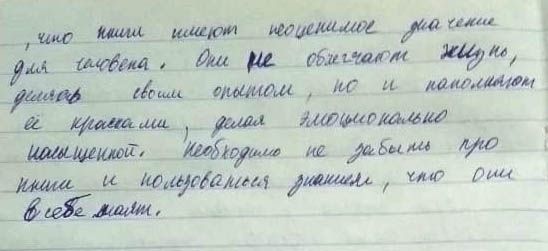 , что книги имеют неоценимое значение
для человека. Они не облегчают жизнь,
делясь своим опытом, но и наполняют
её красками, делая эмоционально
насыщенной. Необходимо не забыть про
книги и пользоваться знанием, что они
в себе таят.